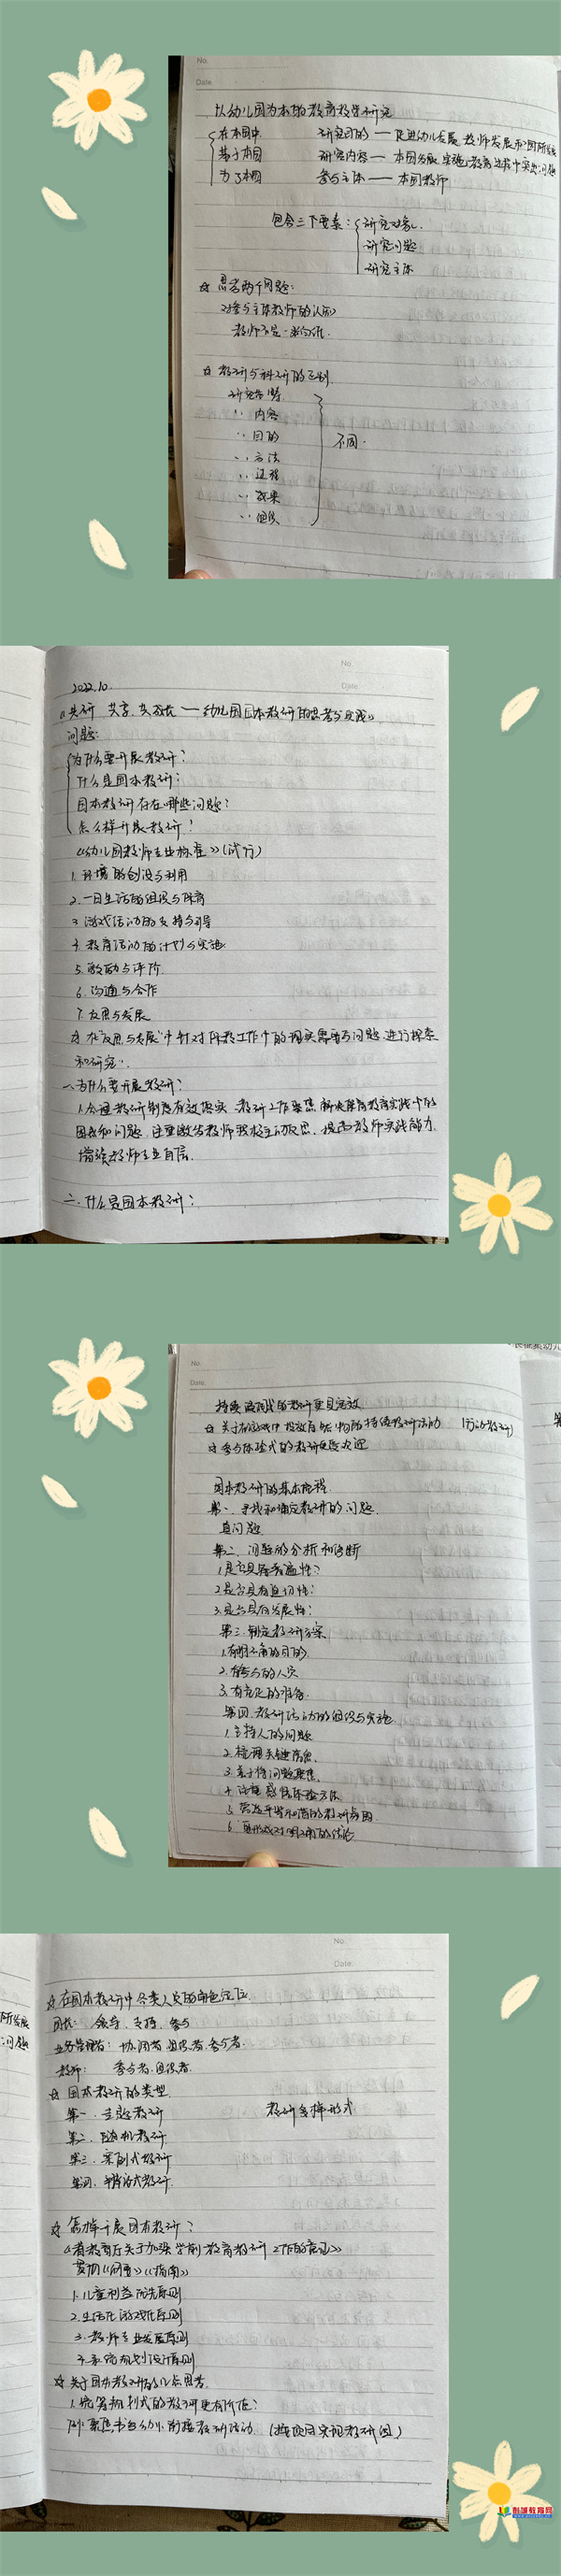 No.
Date.
以幼儿园为本的教育教学研究
在本园中 研究目的——促进幼儿发展 教师发展
基于本园 研究内容——本园发展、实施教育过程中突出问题
为了本园 参与主体——本园教师
包含三个要素:研究对象
研究问题
研究主体
☆ 思考两个问题:
对参与主体教师的认识
☆ 教研与科研的区别
内容
目的 不同.
方法
过程
效果
No.
Date
2022.10.
共研 共享 共成长——幼儿园园本教研的思考与实践》
问题:
为什么要开展教研?
什么是园本教研?
园本教研存在哪些问题?
怎么样开展教研?
《幼儿园教师专业标准》(试行)
1. 环境的创设与利用
2. 一日生活的组织与保育
3. 游戏活动的支持与引导
4. 教育活动的计划与实施
5. 激励与评价
6. 沟通与合作
7. 反思与发展
在"反思与发展"中针对保教工作中的现实需要与问题,进行探索
和研究.
一、为什么要开展教研?
1. 合理教研制度有效落实,教研工作聚焦解决保育教育实践中的
困惑和问题,注重激发教师积极主动反思,提高教师实践能力,
增强教师专业自信.
二. 什么是园本教研?
No.
Date.
☆ 参与体验式的教研更受欢迎
园本教研的基本流程
第一、寻找和确定教研的问题
真问题
第二、问题的分析和诊断
1. 是否具有普遍性?
2. 是否具有迫切性?
3. 是否具有发展性?
第三、制定教研方案
1. 有明确的目的
2. 有参与的人员
3. 有充足的准备
第四、教研活动的组织与实施
1. 主持人的问题
2. 梳理关键信息
3. 善于将问题聚焦
5. 营造平等和谐的教研氛围
6. 要形成对明确的结论
No.
Date.
☆ 在园本教研中各类人员的角色定位
园长: 领导、支持、参与
业务管理者: 协调者、组织者、参与者
教师: 参与者、组织者
☆ 园本教研的类型
第一、主题教研 教研多样形式
第二、随机教研
第三、案例式教研
☆ 怎样开展园本教研?
《省教育厅关于加强学前教育教研工作的意见》
贯彻《纲要》《指南》
1. 儿童利益优先原则
2. 生活化游戏化原则
3. 教师专业发展原则
4. 系统规划设计原则
☆ 关于园本教研的几点思考
1. 统筹规划式的教研更有价值?